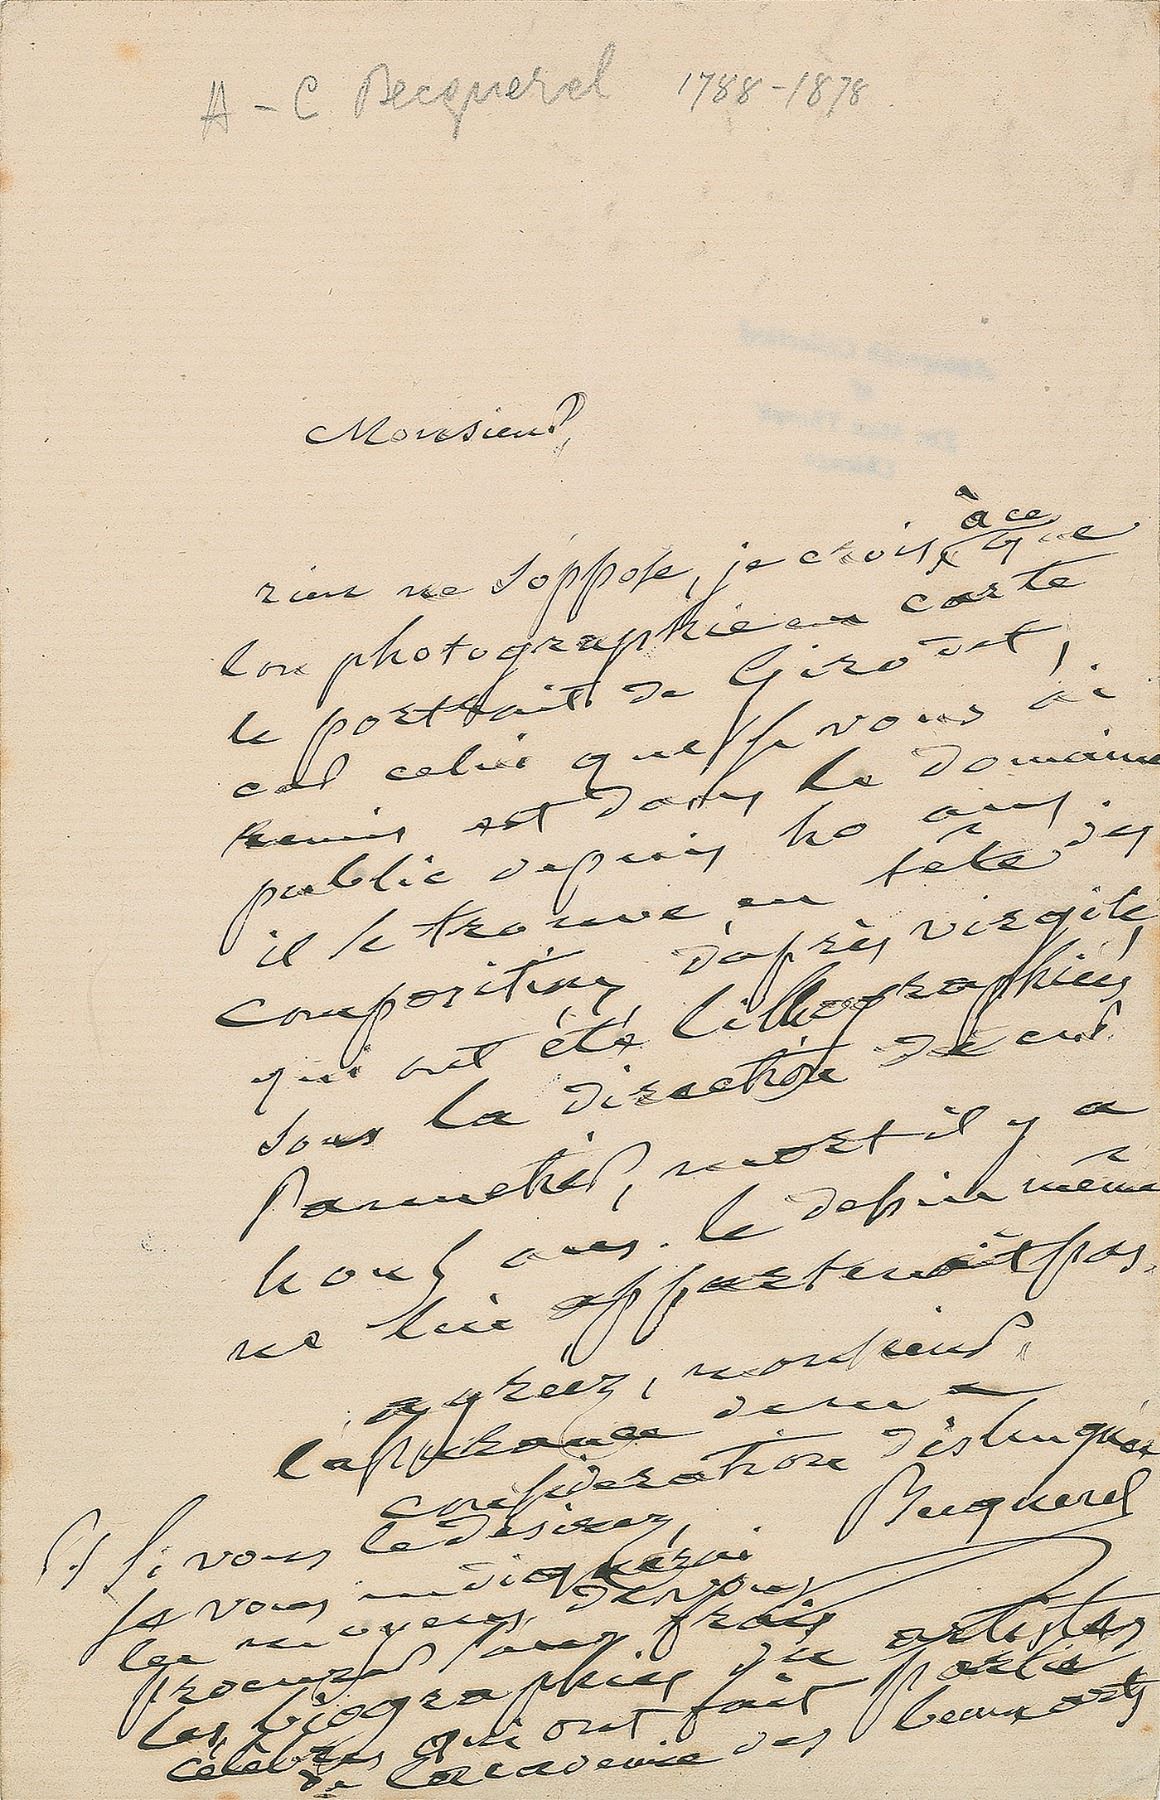 A - C Becquerel 1788-1878
Monsieur,
rien ne s'oppose, je crois, à ce que
l'on photographie en carte
le portrait de Girodet,
car celui que je vous ai
remis est dans le domaine
public depuis 40 ans.
il se trouve en tête des
compositions d'après virgile,
qui ont été lithographiées
sous la direction de
, mort il y a
ans. le dessin même
ne lui appartenait pas.
agréez, monsieur,
l'assurance de ma
considération distinguée
Becquerel
PS si vous le desirez,
je vous indiquerai
les moyens de vous
procurer sans frais
les biographies des artistes
célèbres qui ont fait partie
de l'academie des beaux arts